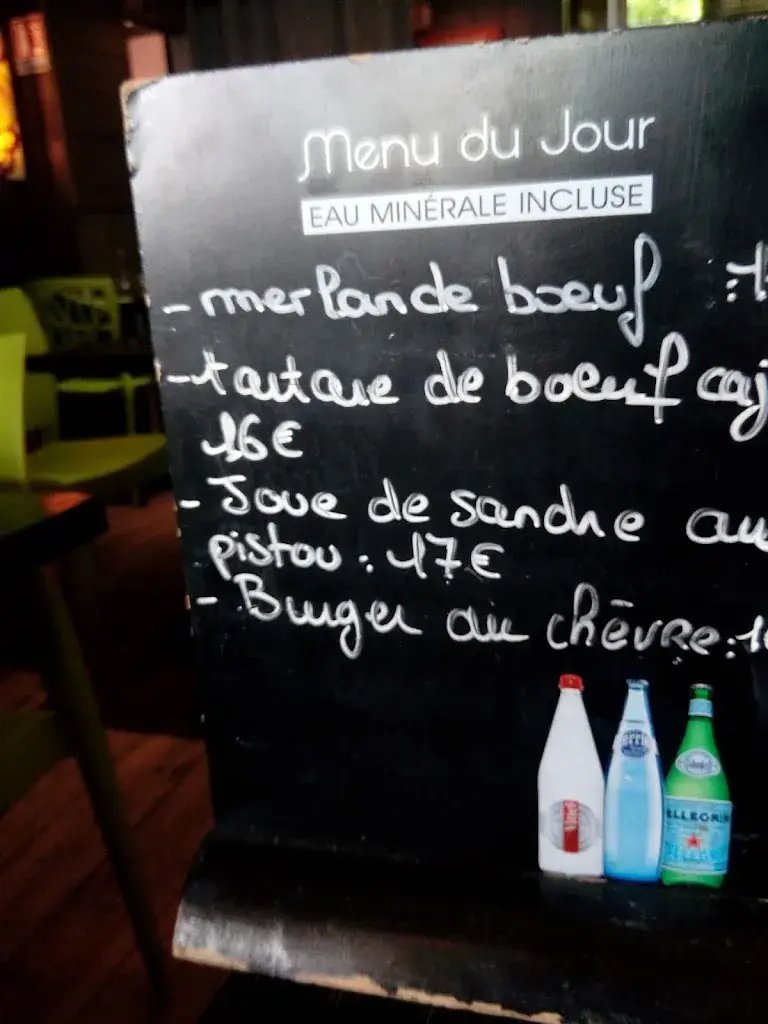 Menu du Jour
EAU MINÉRALE INCLUSE
- merlan de bœuf :1
- tartare de bœuf caj
16€
- Joue de sandre au
pistou : 17€
- Burger au chèvre :1
ELLEGRIN